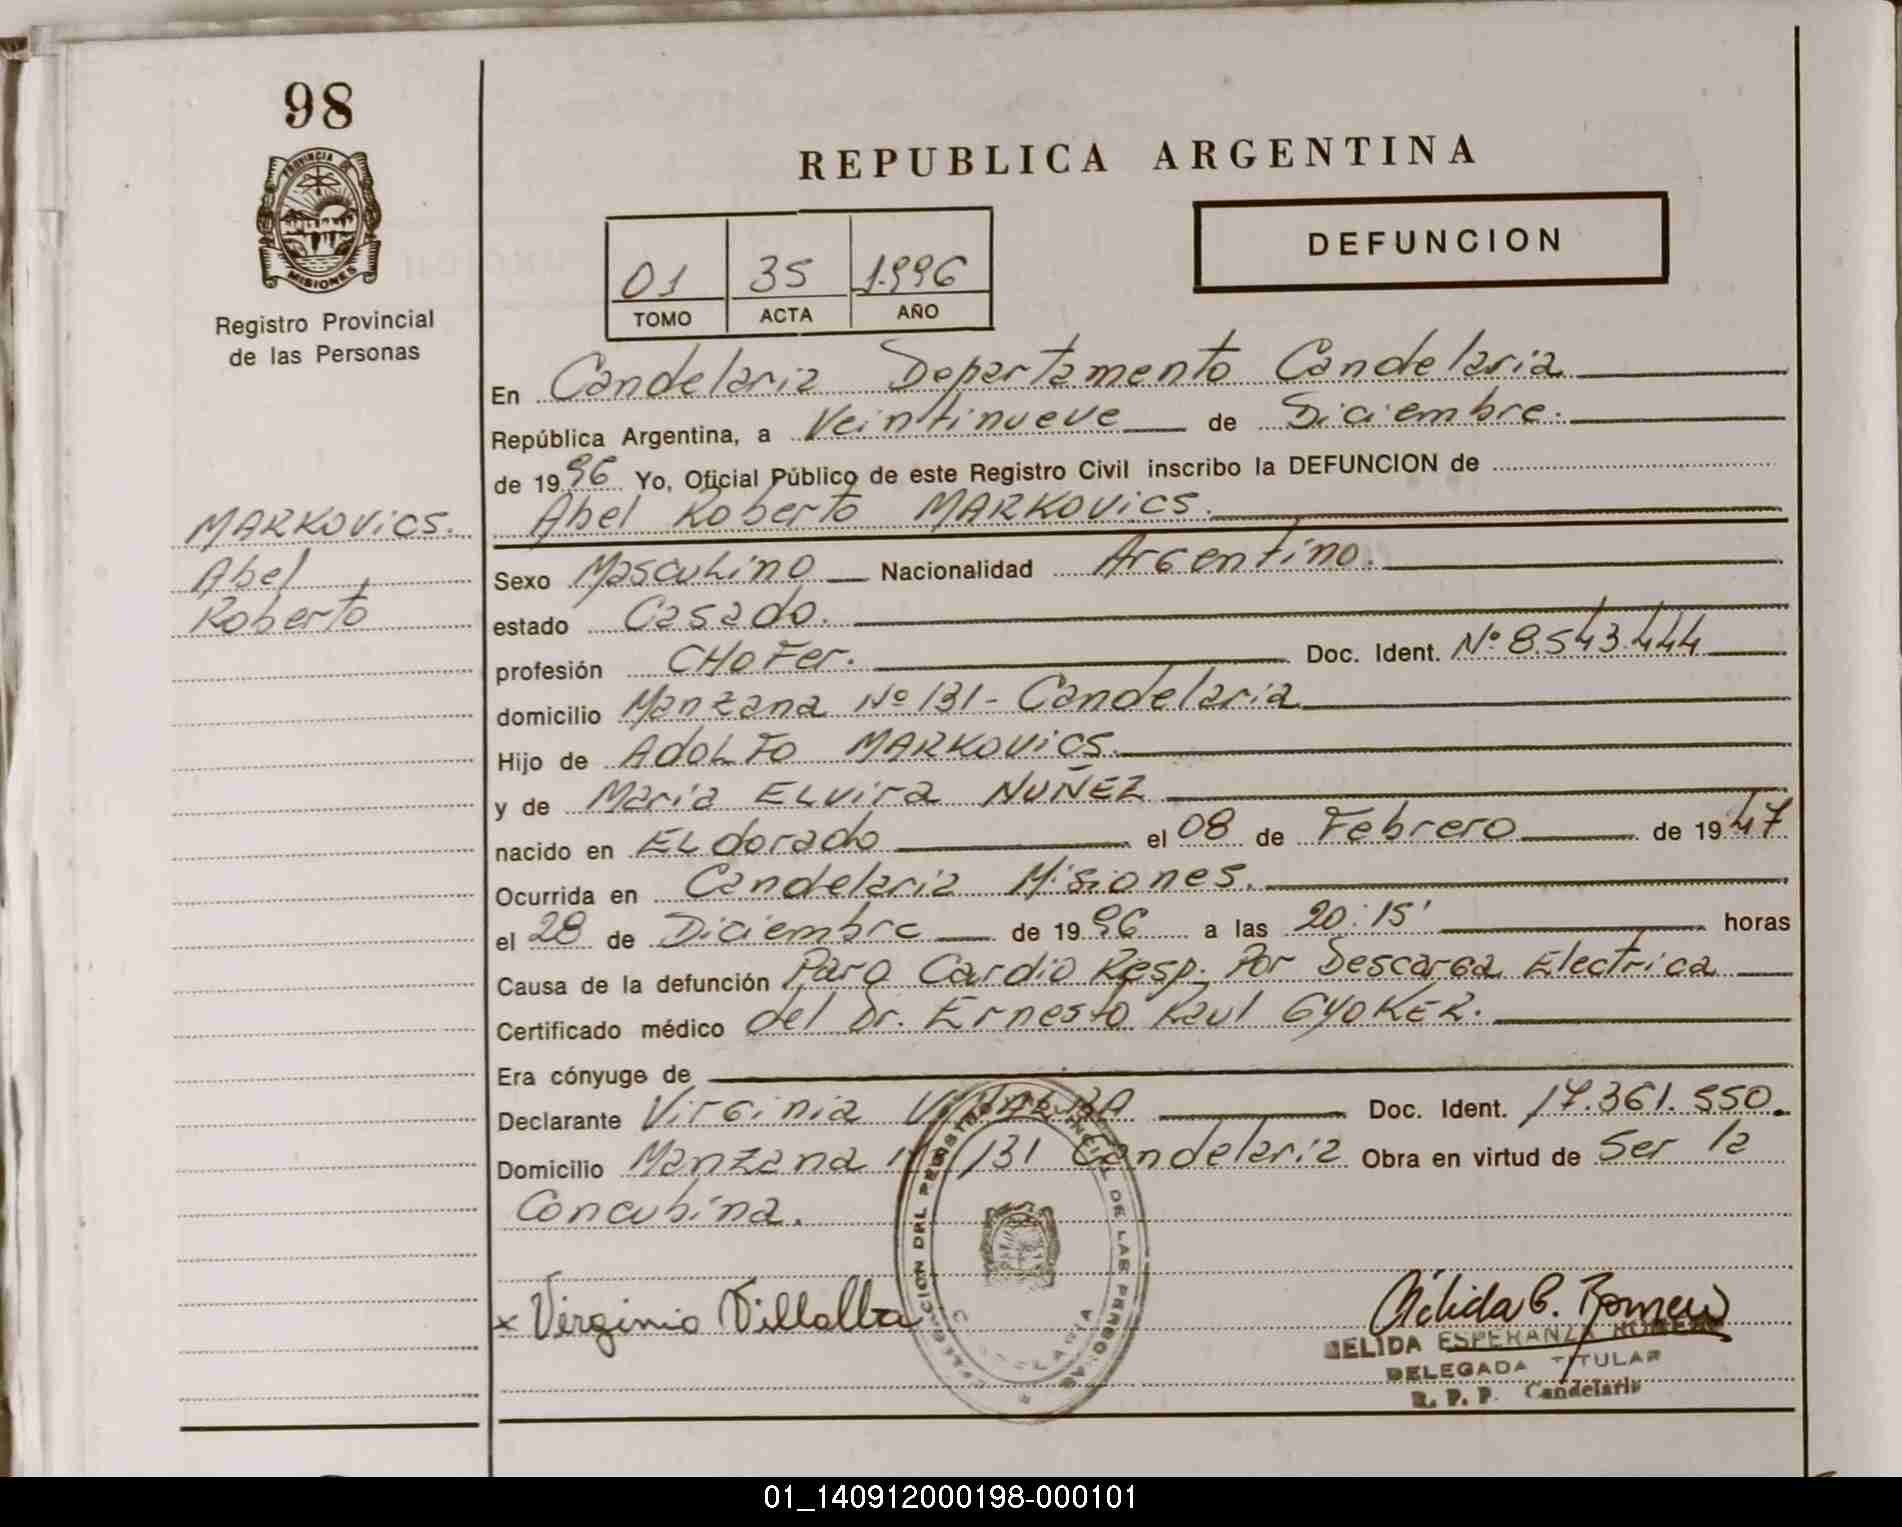 98
PROVINCIA DE
MISIONES
Registro Provincial
de las Personas
MARKOVICS.
Abel
Roberto
REPUBLICA ARGENTINA
01 35 1.996
TOMO ACTA AÑO
DEFUNCION
En Candelaria Departamento Candelaria
República Argentina, a Veintinueve de Diciembre.
de 1996 Yo, Oficial Público de este Registro Civil inscribo la DEFUNCION de
Abel Roberto MARKOVICS.
Sexo Masculino Nacionalidad Argentino.
estado Casado.
profesión CHOFER. Doc. Ident. Nº 8.543.444
domicilio Manzana Nº 131 - Candelaria
Hijo de ADOLFO MARKOVICS.
y de María ELvira NUÑEZ
nacido en ELdorado el 08 de Febrero de 1947
Ocurrida en Candelaria Misiones.
el 28 de Diciembre de 1996 a las 20:15' horas
Causa de la defunción Paro Cardio Resp. Por Descarga Electrica
Certificado médico del Dr. Ernesto Raul GYOKER.
Era cónyuge de
Declarante Virginia Doc. Ident. 17.361.550.
Domicilio Manzana Nº 131 Candelaria Obra en virtud de Ser la
Concubina.
x Virginia Villalba
Nélida E. Romero
NELIDA ESPERANZA ROMERO
DELEGADA TITULAR
R. P. P. Candelaria
DE LAS PERSONAS
CANDELARIA
01_140912000198-000101